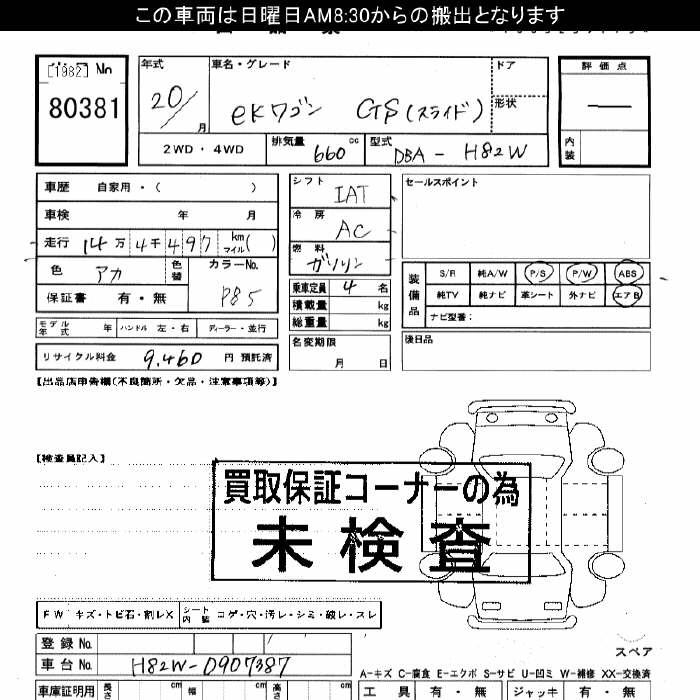 この車両は日曜日AM8:30からの搬出となります
[1982] No 80381
年式 20/ 月
車名・グレード eKワゴン GS(スライド)
ドア
形状
評価点 —
内装
2WD・4WD 排気量 660 cc 型式 DBA - H82W
車歴 自家用・( )
車検 年 月
走行 14万4千497 km マイル( )
色 アカ 色替 カラーNo. P85
保証書 有・無
モデル年式 年 ハンドル 左・右 ディーラー・並行
リサイクル料金 9,460 円 預託済
シフト IAT
冷房 AC
燃料 ガソリン
乗車定員 4 名
積載量 kg
総重量 kg
名変期限 月 日
セールスポイント
装備品 S/R 純A/W P/S P/W ABS
純TV 純ナビ 革シート 外ナビ エアB
ナビ型番:
後日品
【出品店申告欄(不良箇所・欠品・注意事項等)】
【検査員記入】
買取保証コーナーの為
未検査
FW キズ・トビ石・割レX シート内装 コゲ・穴・汚レ・シミ・破レ・スレ
登録No. /
車台No. H82W-0907387
スペア
A-キズ C-腐食 E-エクボ S-サビ U-凹ミ W-補修 XX-交換済
車庫証明用 長さ cm 幅 cm 高さ cm
工具 有・無 ジャッキ 有・無